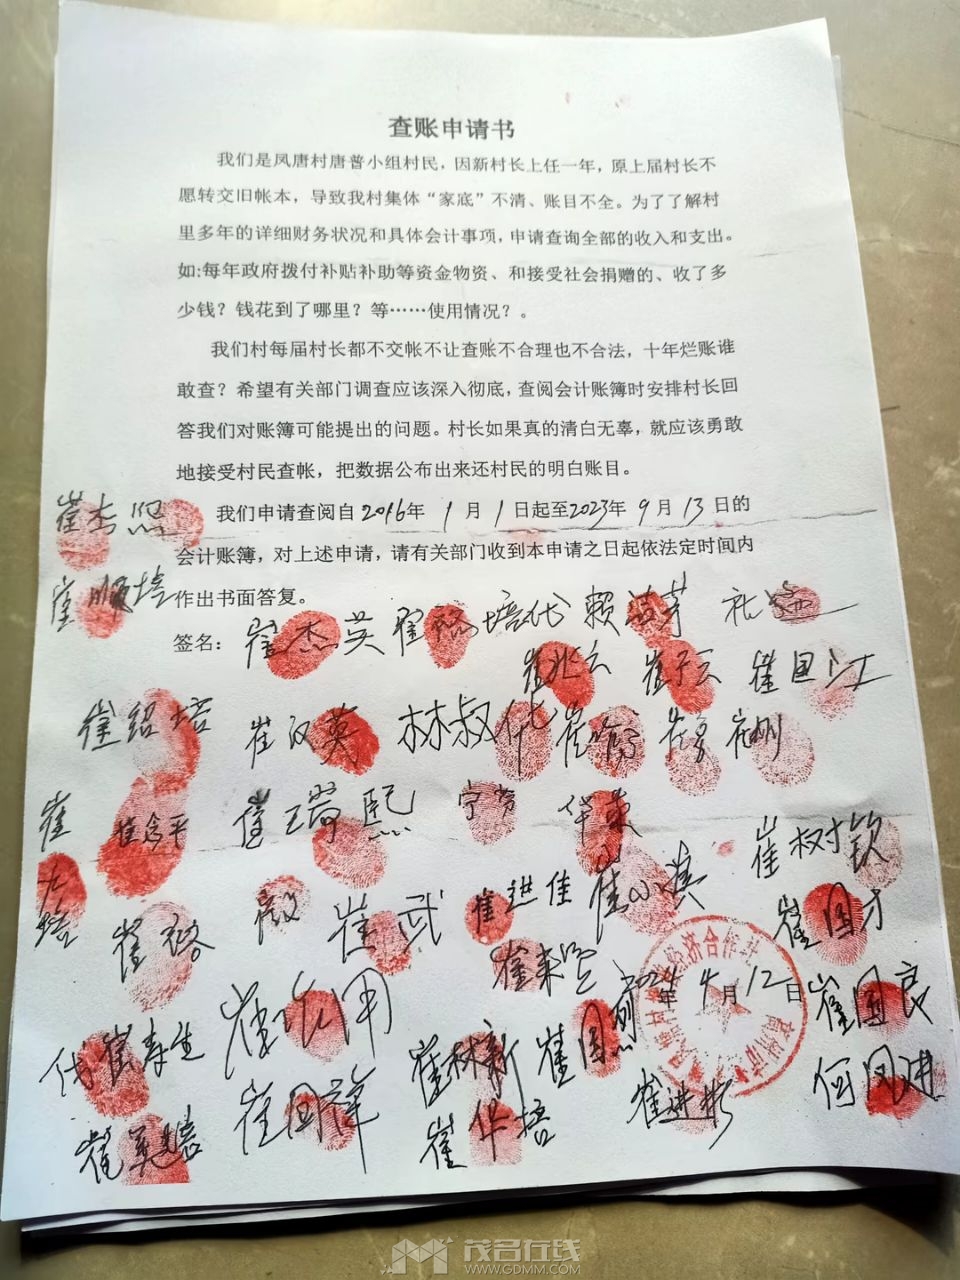 查账申请书
我们是凤唐村唐普小组村民，因新村长上任一年，原上届村长不
愿转交旧帐本，导致我村集体“家底”不清、账目不全。为了了解村
里多年的详细财务状况和具体会计事项，申请查询全部的收入和支出。
如:每年政府拨付补贴补助等资金物资、和接受社会捐赠的、收了多
少钱？钱花到了哪里？等……使用情况？。
我们村每届村长都不交帐不让查账不合理也不合法，十年烂账谁
敢查？希望有关部门调查应该深入彻底，查阅会计账簿时安排村长回
答我们对账簿可能提出的问题。村长如果真的清白无辜，就应该勇敢
地接受村民查帐，把数据公布出来还村民的明白账目。
我们申请查阅自2016年1月1日起至2023年9月13日的
会计账簿，对上述申请，请有关部门收到本申请之日起依法定时间内
作出书面答复。
崔杰熙
崔顺培
签名：崔杰英
崔兆云 崔子云 崔国江
崔绍培 崔汉英 林叔
崔念平 崔瑞熙 宁芳 华英
崔树钦
崔武 崔进佳
崔国才
2024年4月12日
经济合作社
崔国良
代崔寿生 崔林新 崔国
崔国祥 崔华培 崔进彬
何凤进
崔英培
茂名在线
WWW.GDMM.COM